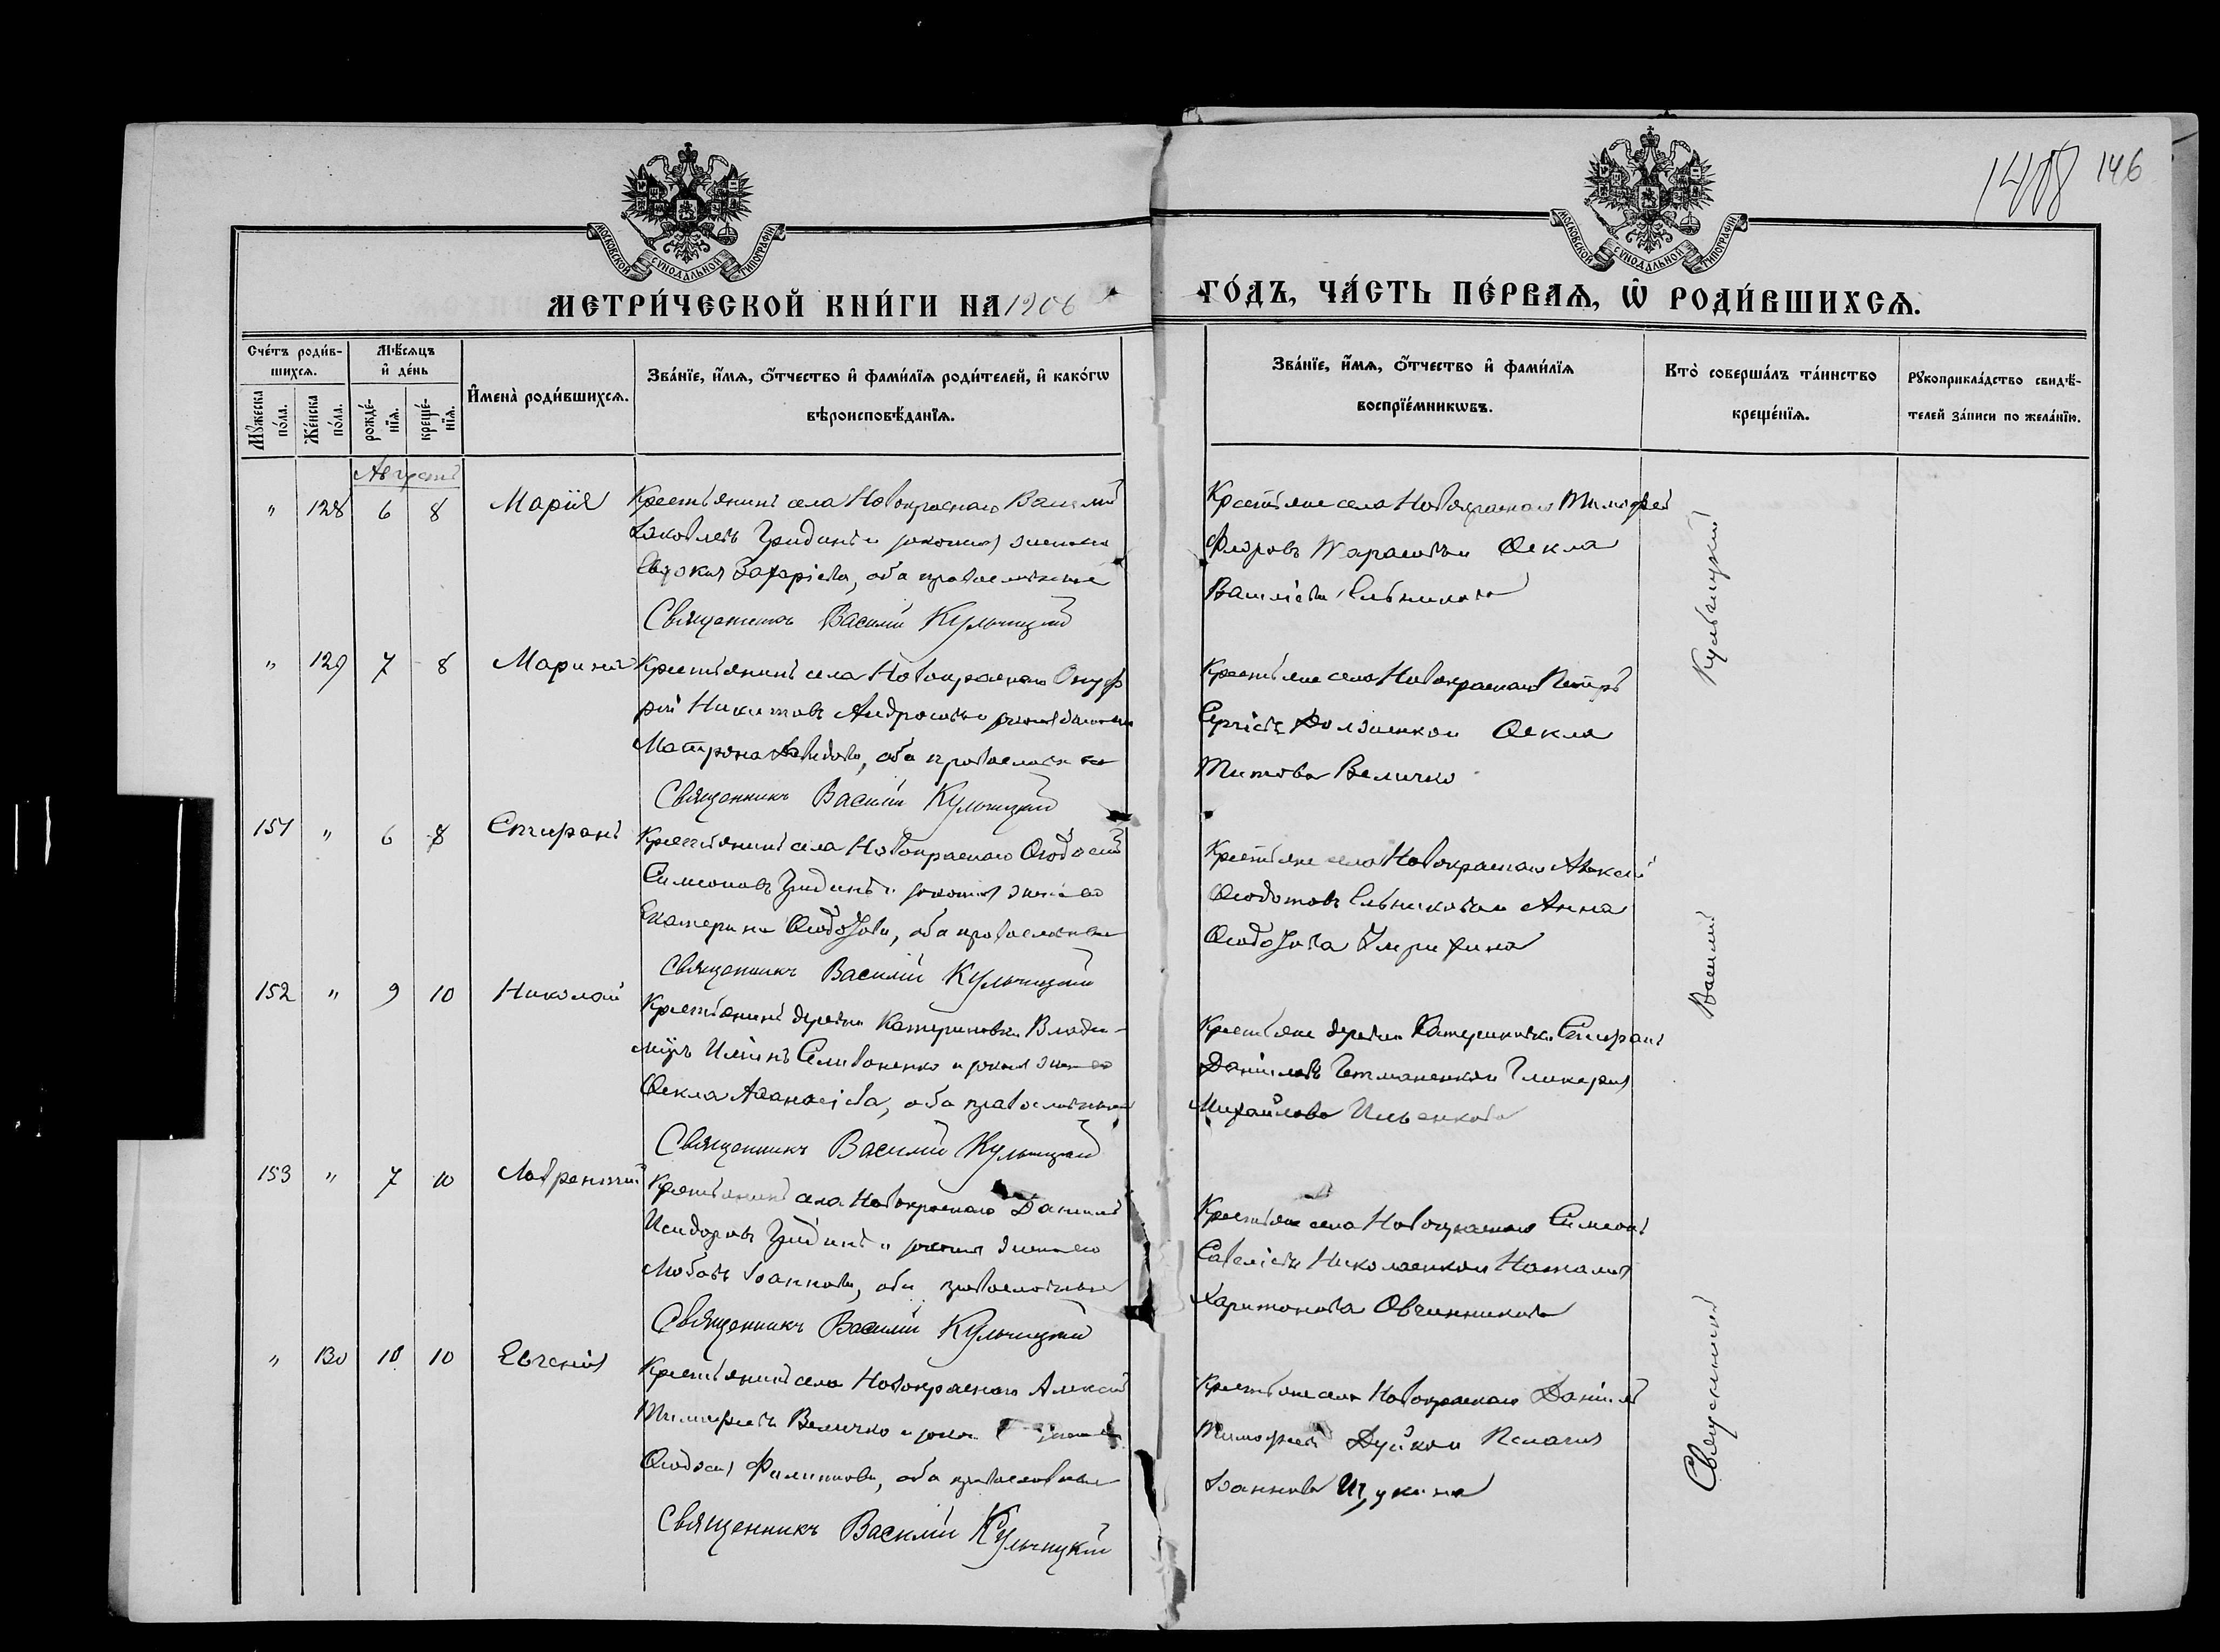 1408 146
МОСКОВСКОЙ СУНОДАЛЬНОЙ ТИПОГРАФИИ
МОСКОВСКОЙ СУНОДАЛЬНОЙ ТИПОГРАФИИ
МЕТРИ́ЧЕСКОЙ КНИ́ГИ НА 1906
ГО́ДЪ, ЧА́СТЬ ПЕ́РВАѦ, Ѡ҆ РОДИ́ВШИХСѦ.
Сче́тъ роди́в-
шихсѧ.
Мꙋ́жеска по́ла.
Же́нска по́ла.
Мѣ́сѧцъ
и҆ де́нь
рожде́-
нїѧ.
креще́-
нїѧ.
И҆мена̀ роди́вшихсѧ.
Зва́нїе, и҆́мѧ, ѻ҆́тчество и҆ фами́лїѧ роди́телей, и҆ како́гѡ
вѣроисповѣ́данїѧ.
Зва́нїе, и҆́мѧ, ѻ҆́тчество и҆ фами́лїѧ
воспрїе́мникѡвъ.
Кто̀ соверша́лъ та́инство
креще́нїѧ.
Рꙋкоприкла́дство свидѣ́-
телей за́писи по жела́нїю.
Августъ
" 128 6 8 Марія
Крестьянинъ села Новокраснаго Василій
Іаковлевъ Гридинъ и законная жена его
Евдокия Захаріева, оба православные
Священникъ Василий Кульчицкий
Крестьяне села Новокраснаго Тимофей
Фларовъ Тарасовъ и Ѳекла
Василіева Ельникова
" 129 7 8 Марина
Крестьянинъ села Новокраснаго Онуф
рій Никитовъ Андросовъ и законная жена его
Матрона Давидова, оба православные
Священникъ Василій Кульчицкий
Крестьяне села Новокраснаго Петръ
Сергіевъ Долженко и Ѳекла
Титова Величко
151 " 6 8 Спиридонъ
Крестьянинъ села Новокраснаго Ѳеодосій
Симеоновъ Гридинъ и законная жена его
Екатерина Ѳеодотова, оба православные
Священникъ Василій Кульчицкий
Крестьяне села Новокраснаго Алексій
Ѳеодотовъ Ельниковъ и Анна
Ѳеодотова
152 " 9 10 Николай
Крестьянинъ деревни Катериновки Влади-
міръ Иліинъ Селивоненко и законная жена его
Ѳекла Аѳанасіева, оба православные
Священникъ Василий Кульчицкий
Крестьяне деревни Катериновки
Даніиловъ Гетманенко и Гликерия
Михайлова Ильенкова
153 " 7 10 Лаврентий
Крестьянинъ села Новокраснаго Даниилъ
Исидоровъ Гридинъ и законная жена его
Любовь Іоаннова, оба православные
Священникъ Василий Кульчицкий
Крестьяне села Новокраснаго Симеонъ
Савеліевъ Николаенко и Наталия
Харитонова Овчинникова
" 130 10 10 Евгенія
Крестьянинъ села Новокраснаго Алексій
Тимофеевъ Величко и законная жена его
Ѳеодосия Филиппова, оба православные
Священникъ Василий Кульчицкий
Крестьяне села Новокраснаго Даніилъ
Тимофеевъ Дуйко и Пелагия
Іоаннова Щукина
Священникъ Василий Кульчицкий